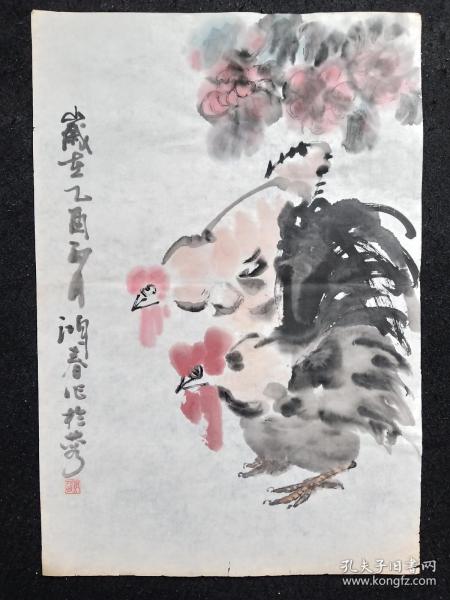 歲在乙酉

鴻春作於
孔夫子旧书网
www.kongfz.com